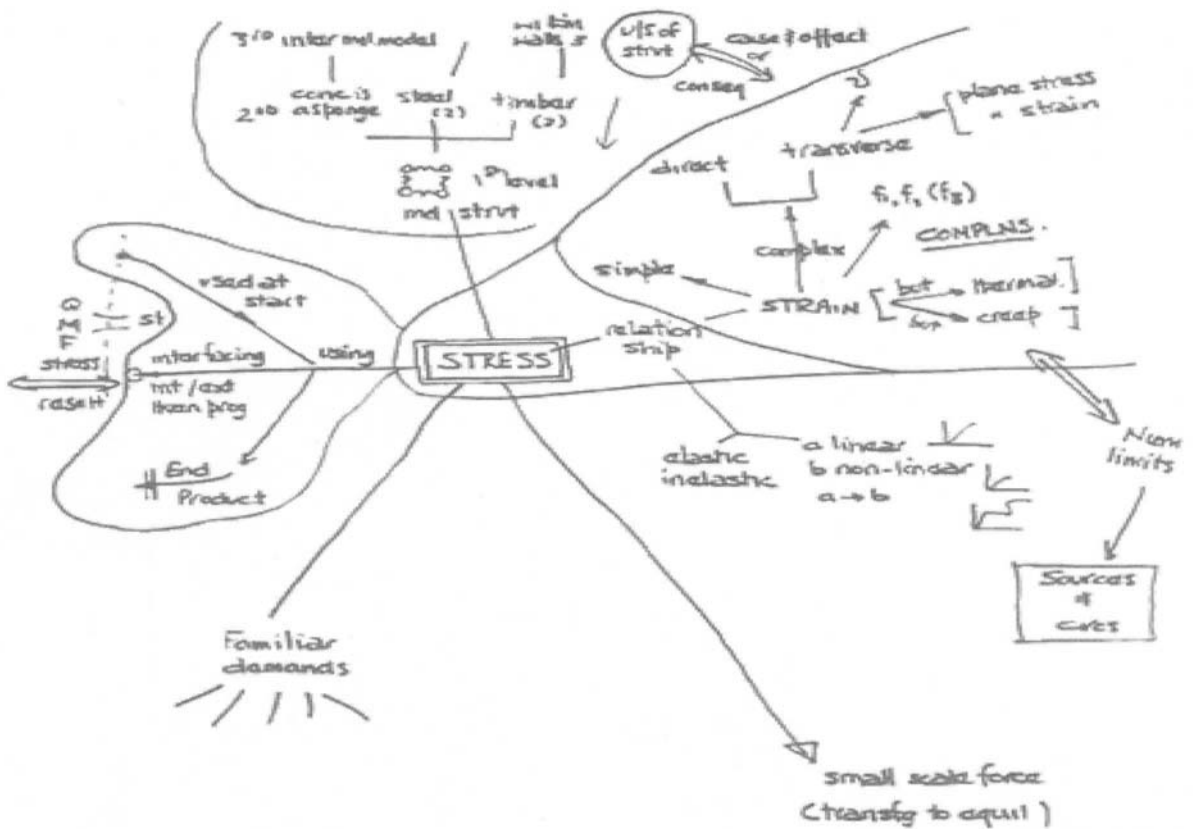 3rd inter mol model
within
walls
u/s of
strut
cause & effect
or
conseq
conc is
a sponge
2nd
steel
(2)
timber
(2)
1st level
mol strut
plane stress
" strain
transverse
direct
complex
COMPLNS.
simple
STRAIN
but
thermal
creep
used at
start
st
stress
result
interfacing
int / ext
then prog
using
STRESS
relation
ship
End
Product
elastic
inelastic
a linear
b non-linear
a → b
Num
limits
Sources
&
cures
Familiar
demands
small scale force
(transfg to equil)